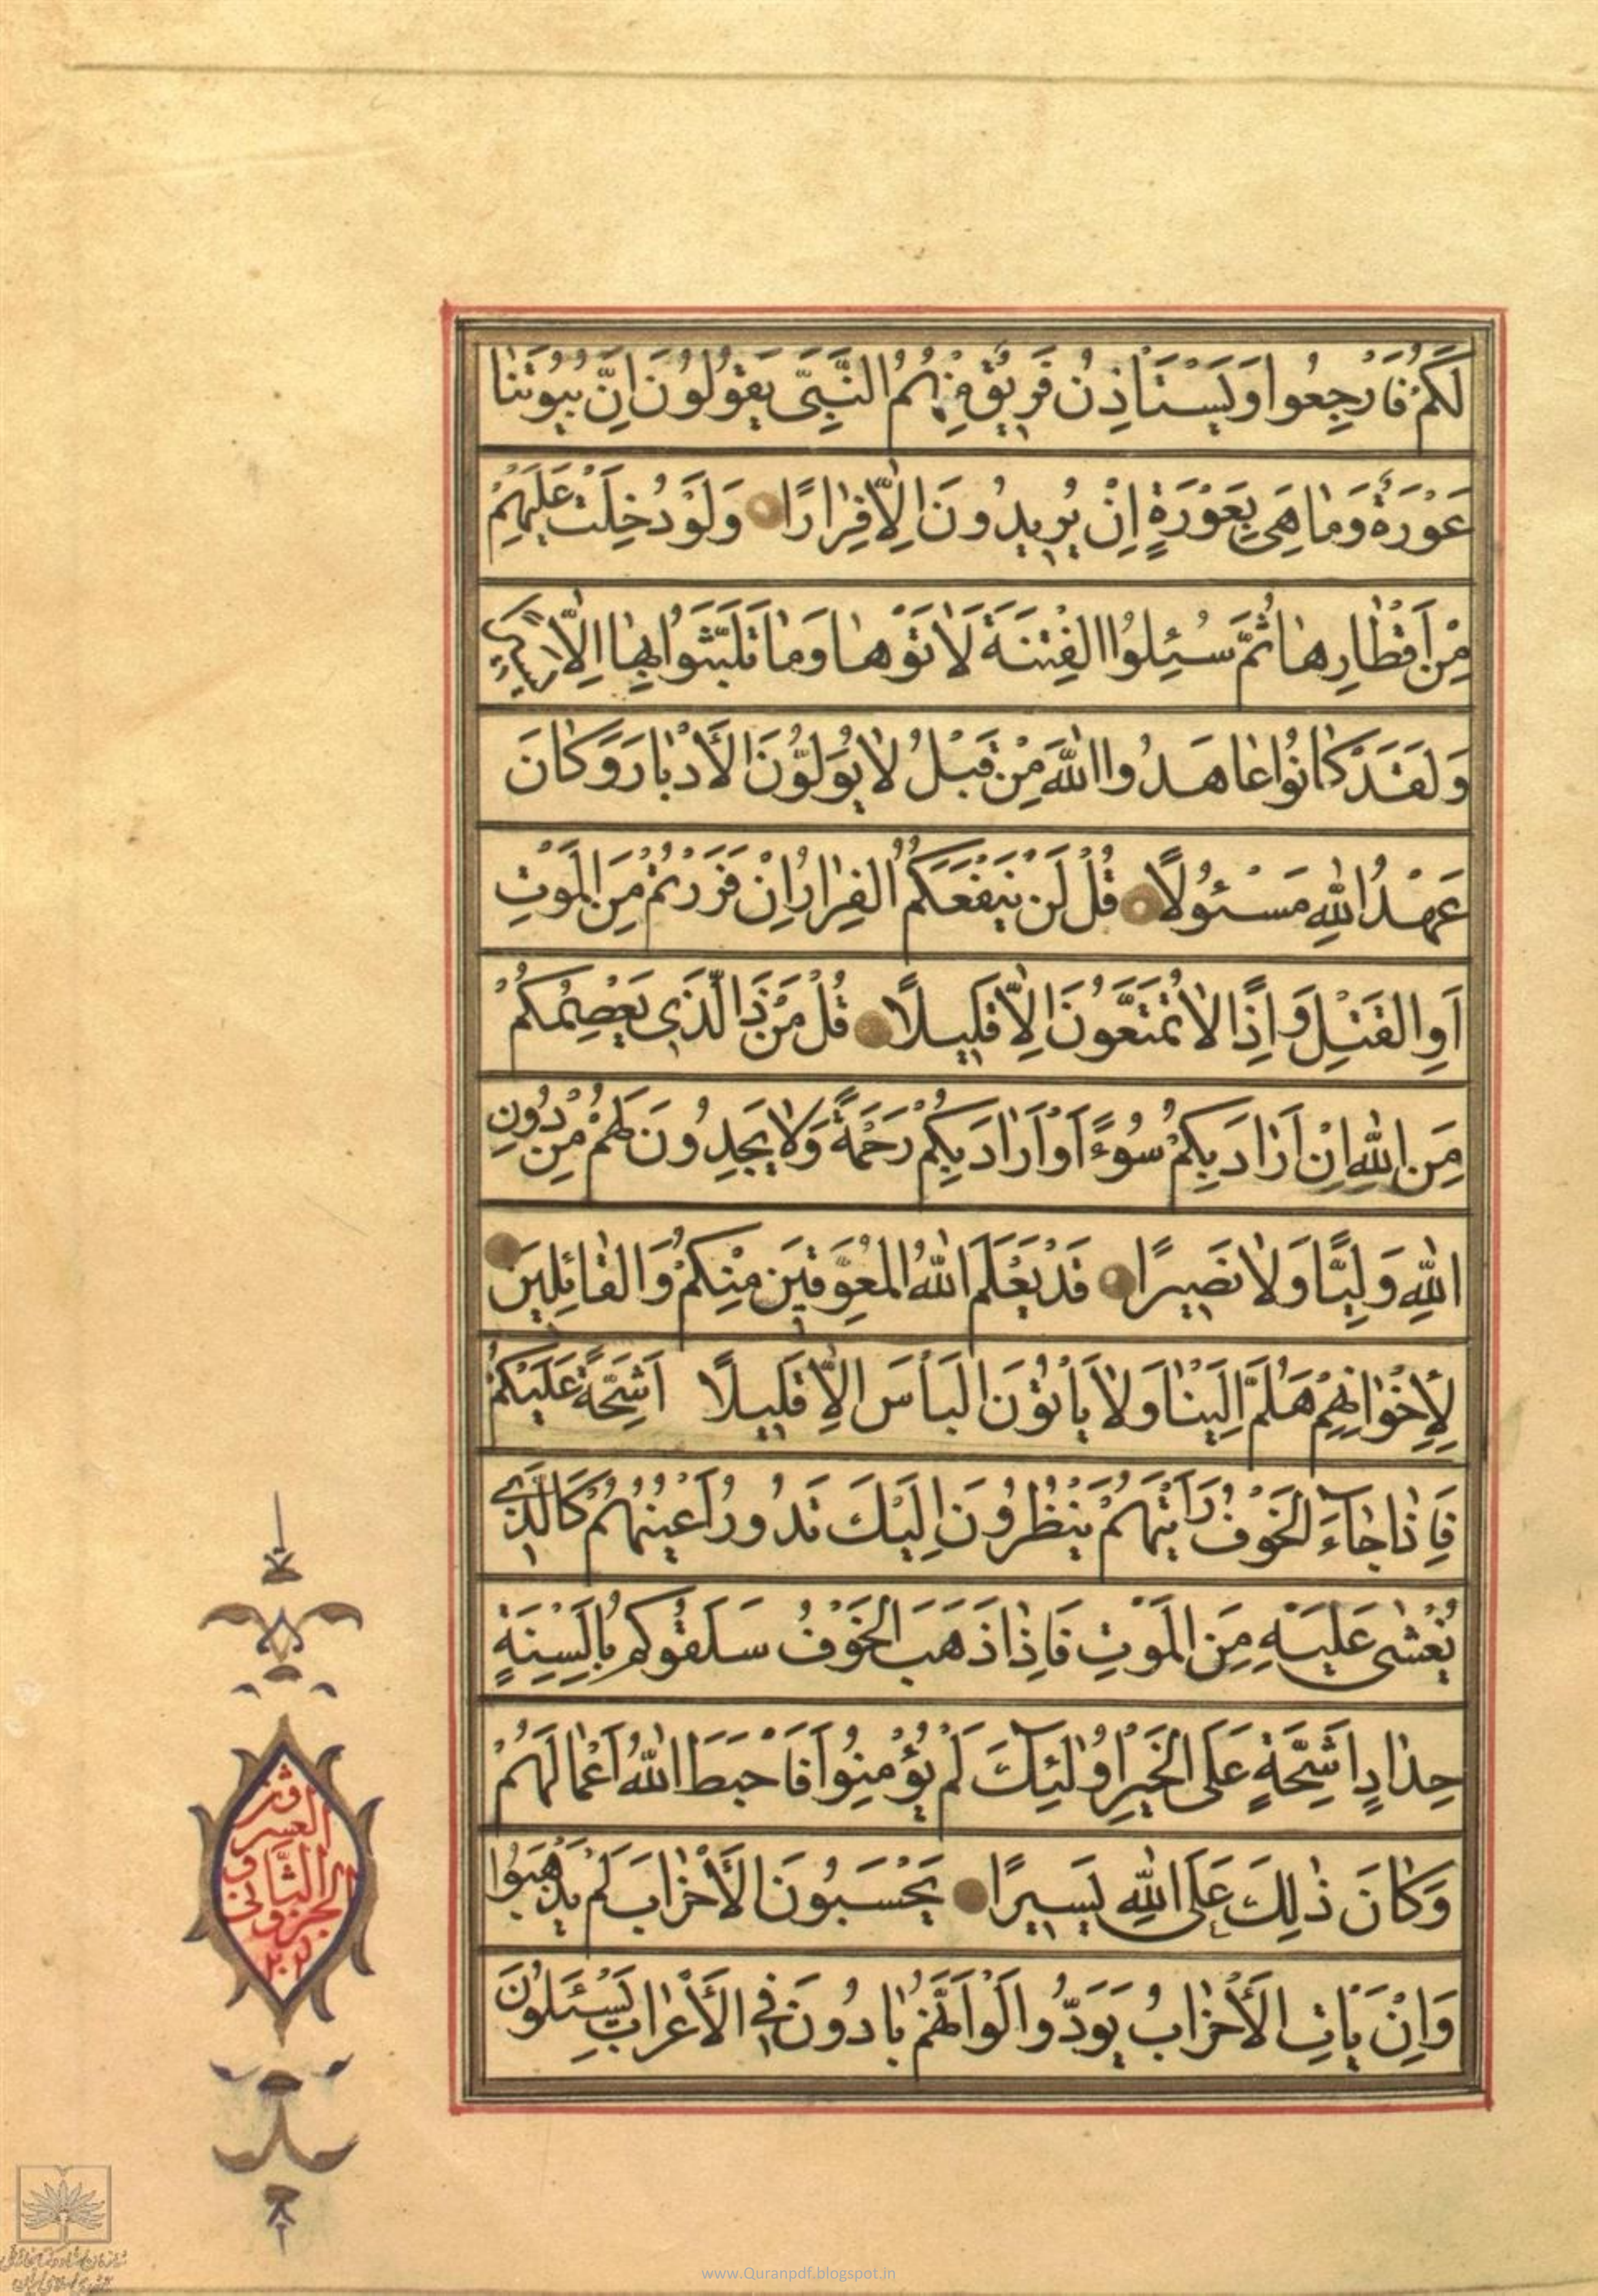 لَكُمْ فَارْجِعُوا وَيَسْتَاْذِنُ فَرِيقٌ مِنْهُمُ النَّبِيَّ يَقُولُونَ اِنَّ بُيُوتَنٰا
عَوْرَةٌ وَمٰا هِيَ بِعَوْرَةٍ اِنْ يُرِيدُونَ اِلّٰا فِرٰارًا وَلَوْ دُخِلَتْ عَلَيْهِمْ
مِنْ اَقْطٰارِهٰا ثُمَّ سُئِلُوا الْفِتْنَةَ لَاٰتَوْهٰا وَمٰا تَلَبَّثُوا بِهٰا اِلّٰا يَسِيرًا
وَلَقَدْ كٰانُوا عٰاهَدُوا اللّٰهَ مِنْ قَبْلُ لٰا يُوَلُّونَ الْأَدْبٰارَ وَكٰانَ
عَهْدُ اللّٰهِ مَسْئُولًا قُلْ لَنْ يَنْفَعَكُمُ الْفِرٰارُ اِنْ فَرَرْتُمْ مِنَ الْمَوْتِ
اَوِ الْقَتْلِ وَ اِذًا لٰا تُمَتَّعُونَ اِلّٰا قَلِيلًا قُلْ مَنْ ذَا الَّذِي يَعْصِمُكُمْ
مِنَ اللّٰهِ اِنْ اَرٰادَ بِكُمْ سُوءًا اَوْ اَرٰادَ بِكُمْ رَحْمَةً وَلٰا يَجِدُونَ لَهُمْ مِنْ دُونِ
اللّٰهِ وَلِيًّا وَلٰا نَصِيرًا قَدْ يَعْلَمُ اللّٰهُ الْمُعَوِّقِينَ مِنْكُمْ وَالْقٰائِلِينَ
لِأِخْوٰانِهِمْ هَلُمَّ اِلَيْنٰا وَلٰا يَأْتُونَ الْبَأْسَ اِلّٰا قَلِيلًا اَشِحَّةً عَلَيْكُمْ
فَاِذٰا جٰآءَ الْخَوْفُ رَاَيْتَهُمْ يَنْظُرُونَ اِلَيْكَ تَدُورُ اَعْيُنُهُمْ كَالَّذِي
يُغْشٰى عَلَيْهِ مِنَ الْمَوْتِ فَاِذٰا ذَهَبَ الْخَوْفُ سَلَقُوكُمْ بِاَلْسِنَةٍ
حِدٰادٍ اَشِحَّةٍ عَلَى الْخَيْرِ اُولٰٓئِكَ لَمْ يُؤْمِنُوا فَاَحْبَطَ اللّٰهُ اَعْمٰالَهُمْ
وَكٰانَ ذٰلِكَ عَلَى اللّٰهِ يَسِيرًا يَحْسَبُونَ الْأَحْزٰابَ لَمْ يَذْهَبُوا
وَاِنْ يَاْتِ الْأَحْزٰابُ يَوَدُّوا لَوْ اَنَّهُمْ بٰادُونَ فِي الْأَعْرٰابِ يَسْئَلُونَ
الجزو
www.Quranpdf.blogspot.in